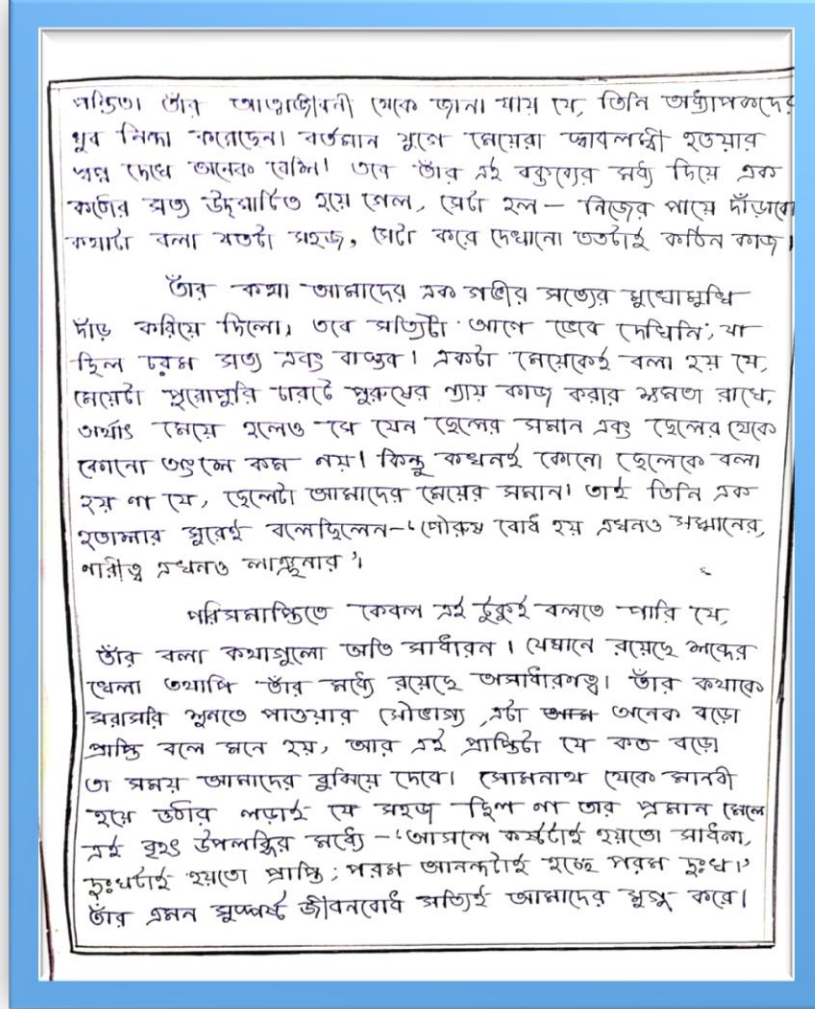 পন্ডিত। তাঁর আত্মজীবনী থেকে জানা যায় যে, তিনি অধ্যাপকদের
খুব নিন্দা করেছেন। বর্তমান যুগে মেয়েরা স্বাবলম্বী হওয়ার
স্বপ্ন দেখে অনেক বেশি। তবে তাঁর এই বক্তব্যের মধ্য দিয়ে এক
কঠোর সত্য উদ্ঘাটিত হয়ে গেল, সেটা হল – নিজের পায়ে দাঁড়াবো
কথাটা বলা যতটা সহজ, সেটা করে দেখানো ততটাই কঠিন কাজ।
তাঁর কথা আমাদের এক গভীর সত্যের মুখোমুখি
দাঁড় করিয়ে দিলো, তবে সত্যিটা আগে ভেবে দেখিনি; যা
ছিল চরম সত্য এবং বাস্তব। একটা মেয়েকেই বলা হয় যে,
মেয়েটা পুরোপুরি চারটে পুরুষের ন্যায় কাজ করার ক্ষমতা রাখে,
অর্থাৎ মেয়ে হলেও সে যেন ছেলের সমান এবং ছেলের থেকে
কোনো অংশে কম নয়। কিন্তু কখনই কোনো ছেলেকে বলা
হয় না যে, ছেলেটা আমাদের মেয়ের সমান। তাই তিনি এক
হতাশার সুরেই বলেছিলেন–‘পৌরুষ বোধ হয় এখনও সম্মানের,
নারীত্ব এখনও লাঞ্ছনার’।
পরিসমাপ্তিতে কেবল এই টুকুই বলতে পারি যে,
তাঁর বলা কথাগুলো অতি সাধারন। যেখানে রয়েছে শব্দের
খেলা তথাপি তাঁর মধ্যে রয়েছে অসাধারণত্ব। তাঁর কথাকে
সরাসরি শুনতে পাওয়ার সৌভাগ্য, এটা অনেক বড়ো
প্রাপ্তি বলে মনে হয়, আর এই প্রাপ্তিটা যে কত বড়ো
তা সময় আমাদের বুঝিয়ে দেবে। সোমনাথ থেকে মানবী
হয়ে ওঠার লড়াই যে সহজ ছিল না তার প্রমান মেলে
এই বৃহৎ উপলব্ধির মধ্যে –‘আসলে কষ্টটাই হয়তো সাধনা,
দুঃখটাই হয়তো প্রাপ্তি; পরম আনন্দটাই হচ্ছে পরম দুঃখ।’
তাঁর এমন সুস্পষ্ট জীবনবোধ সত্যিই আমাদের মুগ্ধ করে।